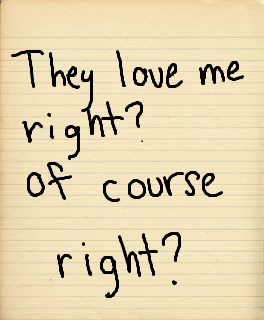 They love me
right?
of course
right?